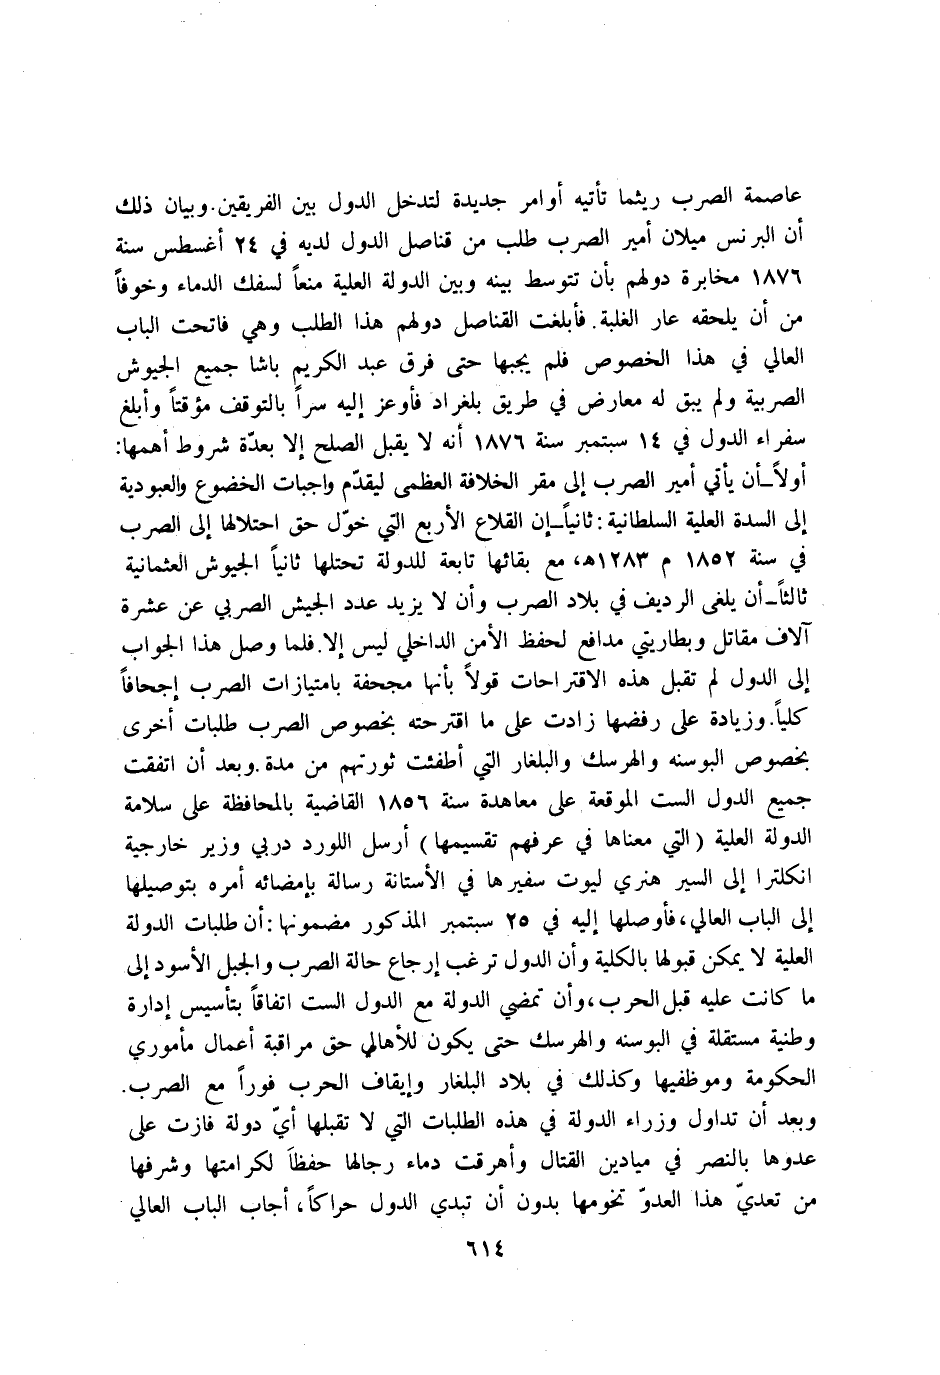 عاصمة الصرب ريثما تأتيه أوامر جديدة لتدخل الدول بين الفريقين. وبيان ذلك
أن البرنس ميلان أمير الصرب طلب من قناصل الدول لديه في ٢٤ أغسطس سنة
١٨٧٦ مخابرة دولهم بأن تتوسط بينه وبين الدولة العلية منعاً لسفك الدماء وخوفاً
من أن يلحقه عار الغلبة. فأبلغت القناصل دولهم هذا الطلب وهي فاتحت الباب
العالي في هذا الخصوص فلم يجبها حتى فرق عبد الكريم باشا جميع الجيوش
الصربية ولم يبق له معارض في طريق بلغراد فأوعز إليه سراً بالتوقف مؤقتاً وأبلغ
سفراء الدول في ١٤ سبتمبر سنة ١٨٧٦ أنه لا يقبل الصلح إلا بعدّة شروط أهمها:
أولاً ـ أن يأتي أمير الصرب إلى مقر الخلافة العظمى ليقدّم واجبات الخضوع والعبودية
إلى السدة العلية السلطانية: ثانياً ـ إن القلاع الأربع التي خوّل حق احتلالها إلى الصرب
في سنة ١٨٥٢ م ١٢٨٣هـ، مع بقائها تابعة للدولة تحتلها ثانياً الجيوش العثمانية
ثالثاً ـ أن يلغى الرديف في بلاد الصرب وأن لا يزيد عدد الجيش الصربي عن عشرة
آلاف مقاتل وبطاريتي مدافع لحفظ الأمن الداخلي ليس إلا. فلما وصل هذا الجواب
إلى الدول لم تقبل هذه الاقتراحات قولاً بأنها مجحفة بامتيازات الصرب إجحافاً
كلياً. وزيادة على رفضها زادت على ما اقترحته بخصوص الصرب طلبات أخرى
بخصوص البوسنه والهرسك والبلغار التي أطفئت ثورتهم من مدة. وبعد أن اتفقت
جميع الدول الست الموقعة على معاهدة سنة ١٨٥٦ القاضية بالمحافظة على سلامة
الدولة العلية (التي معناها في عرفهم تقسيمها) أرسل اللورد دربي وزير خارجية
انكلترا إلى السير هنري ليوت سفيرها في الأستانة رسالة بإمضائه أمره بتوصيلها
إلى الباب العالي، فأوصلها إليه في ٢٥ سبتمبر المذكور مضمونها: أن طلبات الدولة
العلية لا يمكن قبولها بالكلية وأن الدول ترغب إرجاع حالة الصرب والجبل الأسود إلى
ما كانت عليه قبل الحرب، وأن تمضي الدولة مع الدول الست اتفاقاً بتأسيس إدارة
وطنية مستقلة في البوسنه والهرسك حتى يكون للأهالي حق مراقبة أعمال مأموري
الحكومة وموظفيها وكذلك في بلاد البلغار وإيقاف الحرب فوراً مع الصرب.
وبعد أن تداول وزراء الدولة في هذه الطلبات التي لا تقبلها أيّ دولة فازت على
عدوها بالنصر في ميادين القتال وأهرقت دماء رجالها حفظاً لكرامتها وشرفها
من تعديّ هذا العدوّ تخومها بدون أن تبدي الدول حراكاً، أجاب الباب العالي
٦١٤